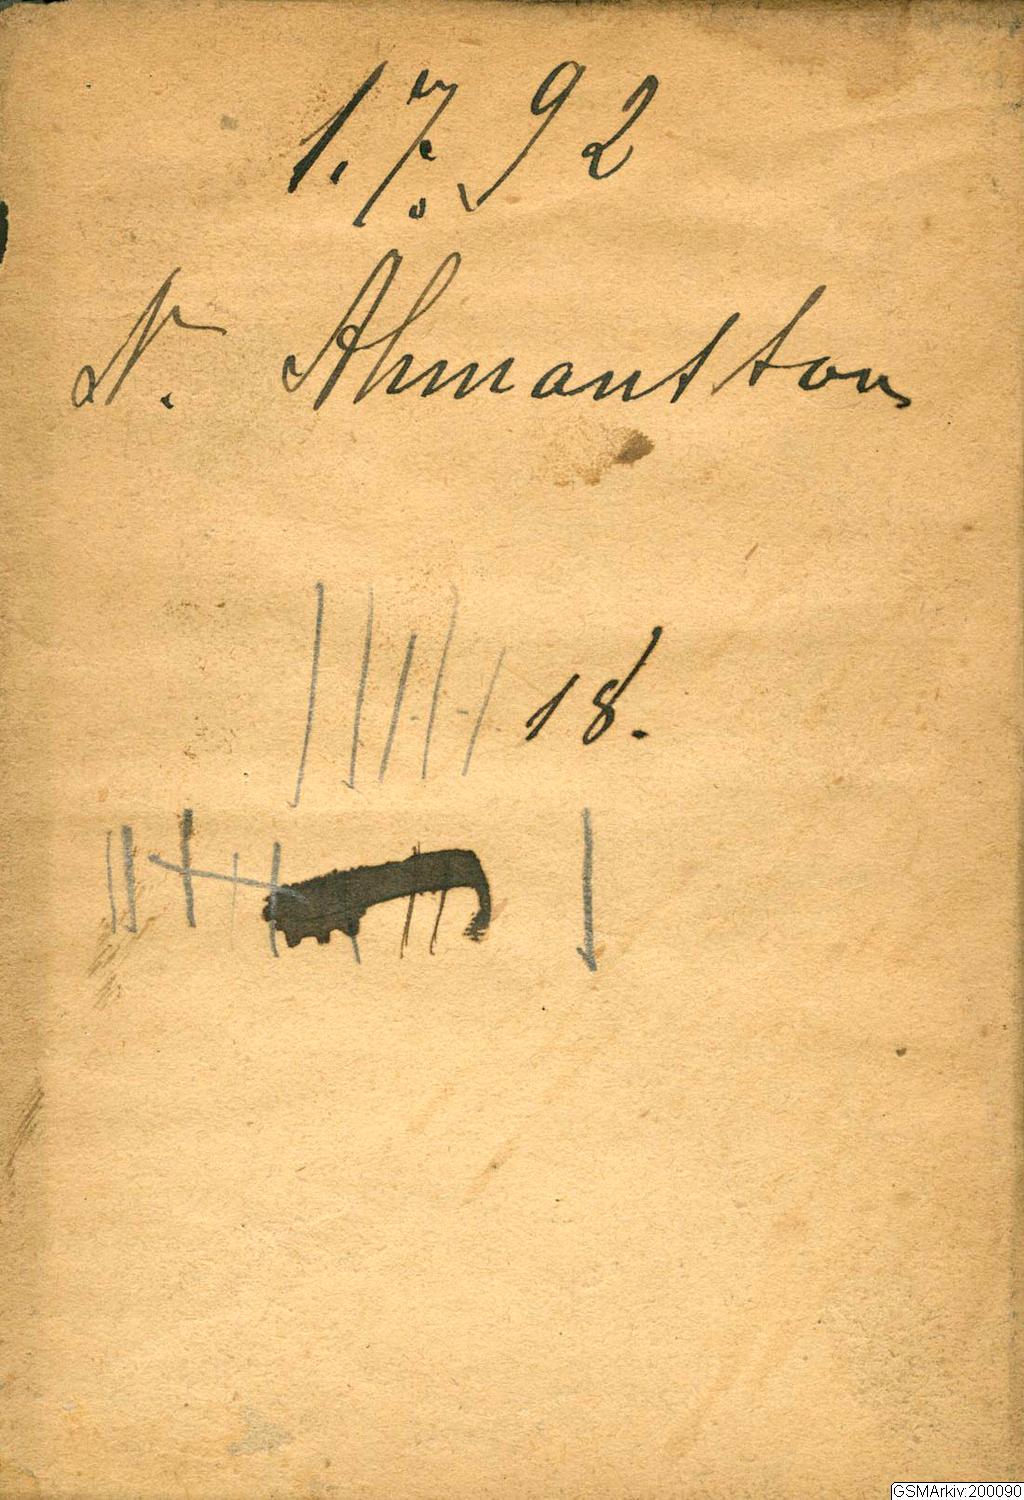 1.7.92
N. Ahmansson
18.
GSMArkiv:200090